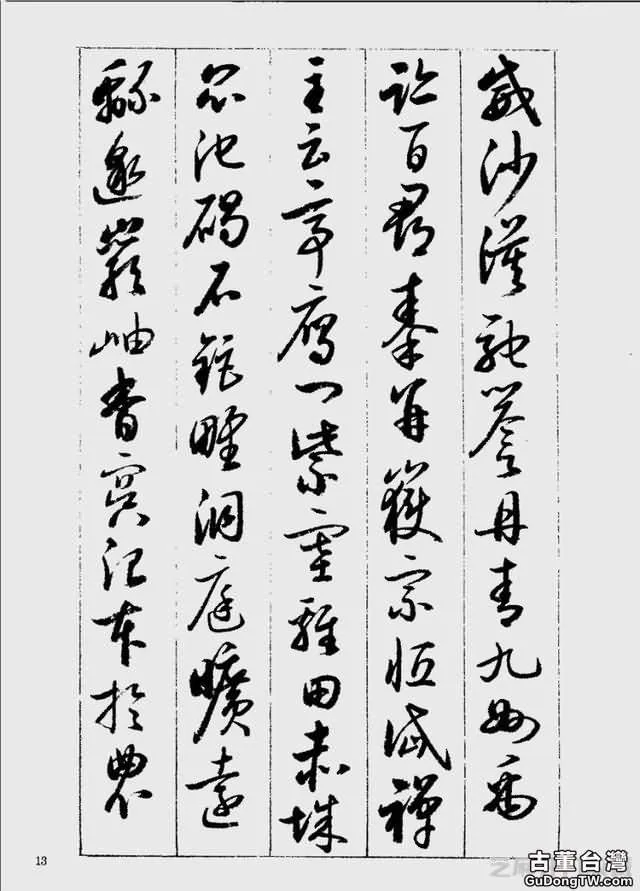 威沙漠馳譽丹青九州禹
跡百郡秦并嶽宗恒岱禪
主云亭雁門紫塞雞田赤城
昆池碣石鉅野洞庭曠遠
緜邈巖岫杳冥治本於農
13
古董台灣
GuDongTW.com